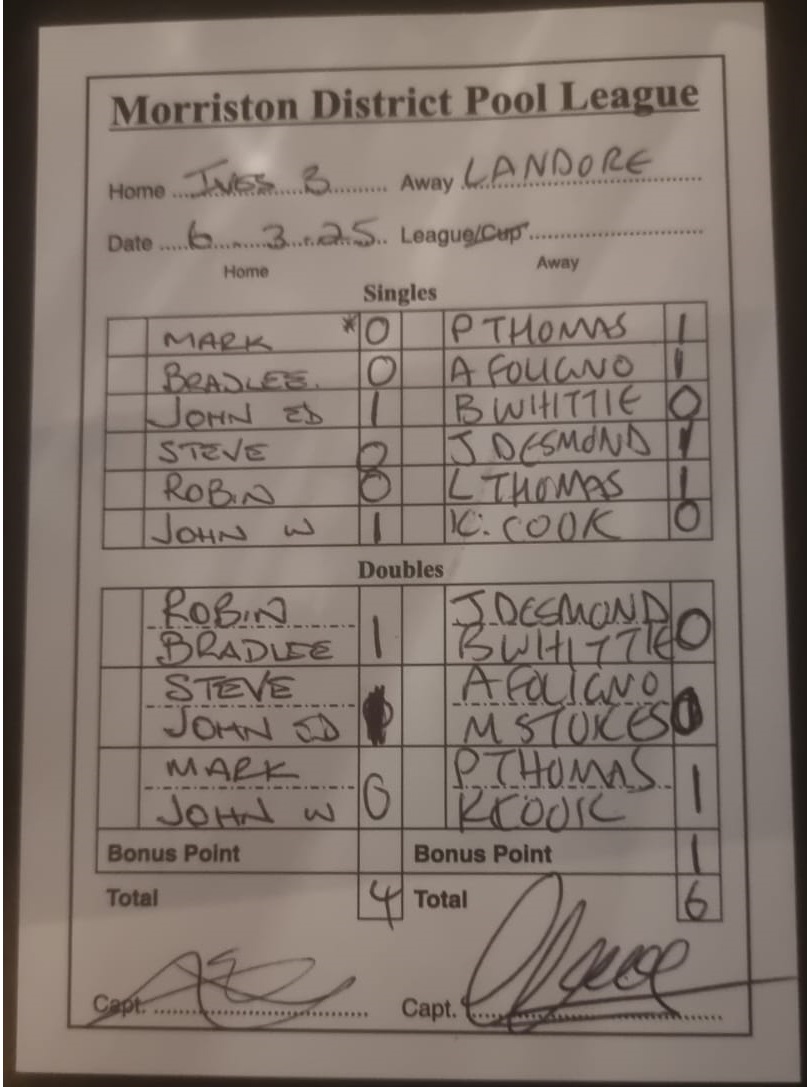 Morriston District Pool League
Home ... IVES B ... Away LANDORE
Date ... 6 ... 3 ... 25 .. League/Cup
Home Away
Singles
MARK *0 P THOMAS 1
BRADLEE. 0 A FOLIGNO 1
JOHN ED 1 B WHITTIE 0
STEVE 0 J DESMOND 1
ROBIN 0 L THOMAS 1
JOHN W 1 K. COOK 0
Doubles
ROBIN J DESMOND
BRADLEE 1 B WHITTIE 0
STEVE A FOLIGNO
JOHN ED M STOKES 0
MARK P THOMAS
JOHN W 0 K COOK 1
Bonus Point Bonus Point 1
Total 4 Total 6
Capt. Capt.